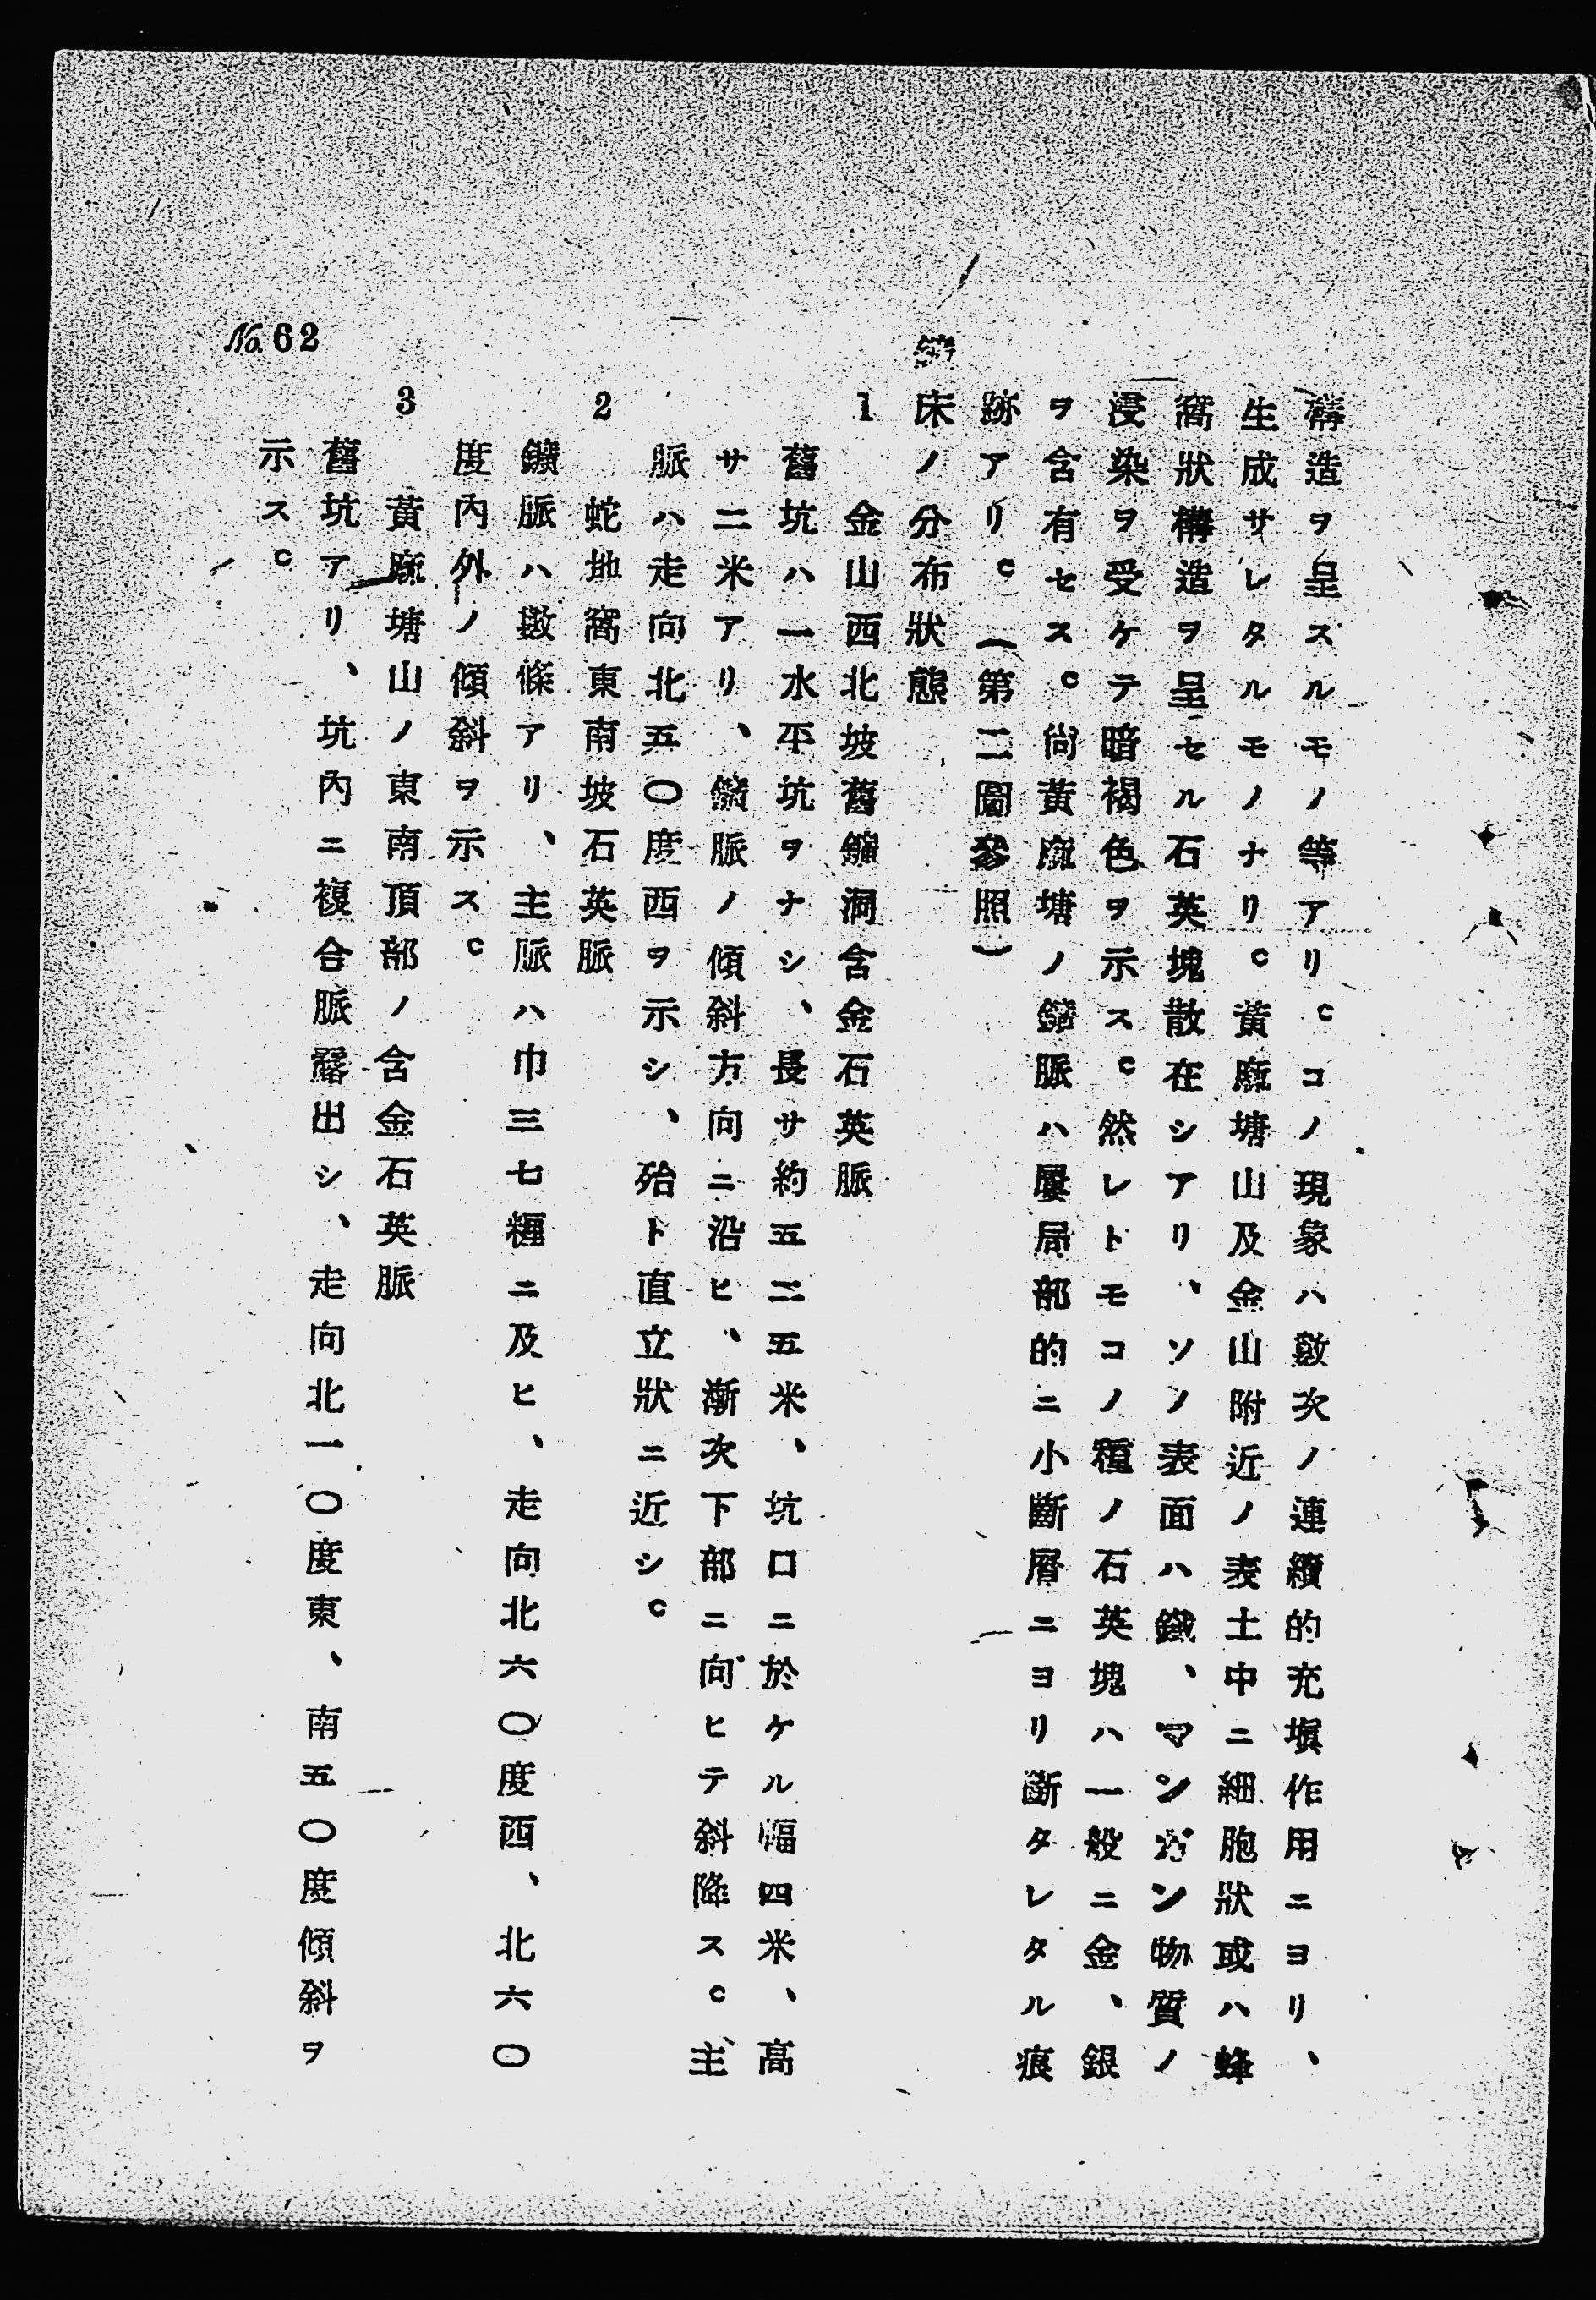 構造ヲ呈スルモノ等アリ。コノ現象ハ數次ノ連續的充塡作用ニヨリ、
生成サレタルモノナリ。黃龐塘山及金山附近ノ表土中ニ細胞狀或ハ蜂
窩狀構造ヲ呈セル石英塊散在シアリ、ソノ表面ハ鐵、マンガン物質ノ
浸染ヲ受ケテ暗褐色ヲ示ス。然レトモコノ種ノ石英塊ハ一般ニ金、銀
ヲ含有セス。尙黃龐塘ノ鑛脈ハ屢局部的ニ小斷層ニヨリ斷タレタル痕
跡アリ。(第二圖參照)
鑛床ノ分布狀態
1 金山西北坡舊鑛洞含金石英脈
舊坑ハ一水平坑ヲナシ、長サ約五二五米、坑口ニ於ケル幅四米、高
サ二米アリ、鑛脈ノ傾斜方向ニ沿ヒ、漸次下部ニ向ヒテ斜降ス。主
脈ハ走向北五〇度西ヲ示シ、殆ト直立狀ニ近シ。
2 蛇地窩東南坡石英脈
鑛脈ハ數條アリ、主脈ハ巾三七糎ニ及ヒ、走向北六〇度西、北六〇
度內外ノ傾斜ヲ示ス。
3 黃龐塘山ノ東南頂部ノ含金石英脈
舊坑アリ、坑內ニ複合脈露出シ、走向北一〇度東、南五〇度傾斜ヲ
示ス。
No. 62